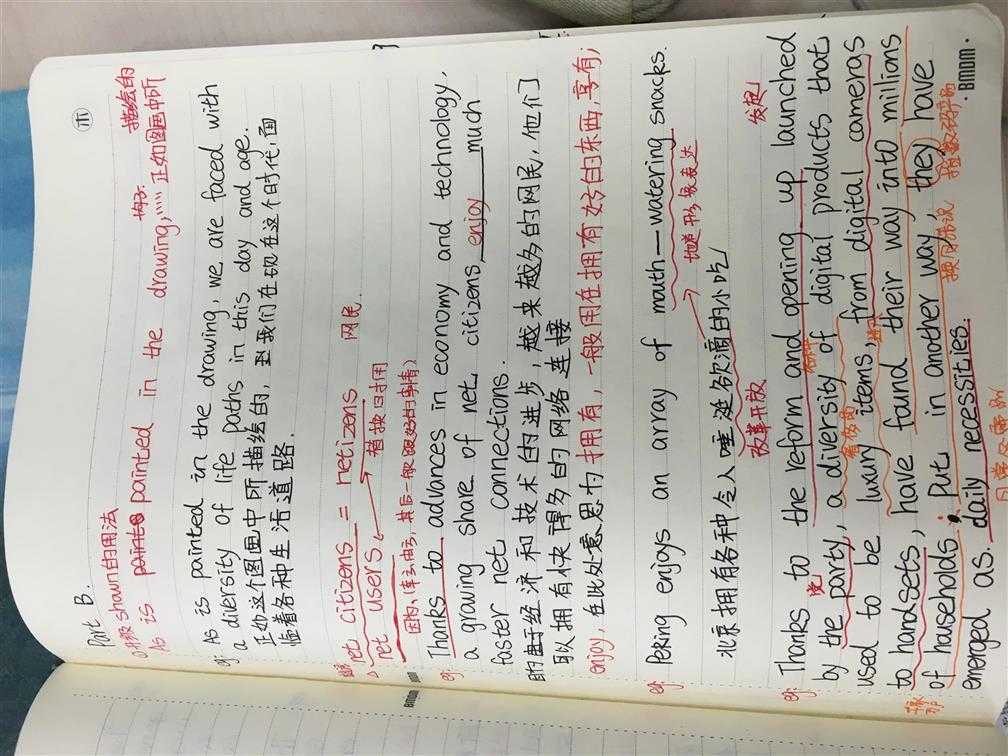 Part B.
shown的用法
As is painted in the drawing, 正如图画中所
描绘的
eg: As is painted in the drawing, we are faced with
a diversity of life paths in this day and age.
正如这个图画中所描绘的, 我们在现在这个时代, 面
临着各种生活道路.
net citizens = netizens 网民.
net users 替换时用
Thanks to advances in economy and technology,
a growing share of net citizens enjoy much
faster net connections.
由于经济和技术的进步, 越来越多的网民, 他们
可以拥有快得多的网络连接
enjoy, 在此处意思为拥有, 一般用在拥有好的东西, 享有;
eg: Peking enjoys an array of mouth-watering snacks.
地道形象表达
北京拥有各种令人唾涎欲滴的小吃
改革开放
发起
eg: Thanks to the reform and opening up launched
党
by the party, a diversity of digital products that
used to be luxury items, from digital cameras
to handsets, have found their way into millions
of households. Put in another way, they have
换句话说
emerged as daily necessities.
BIMOM.